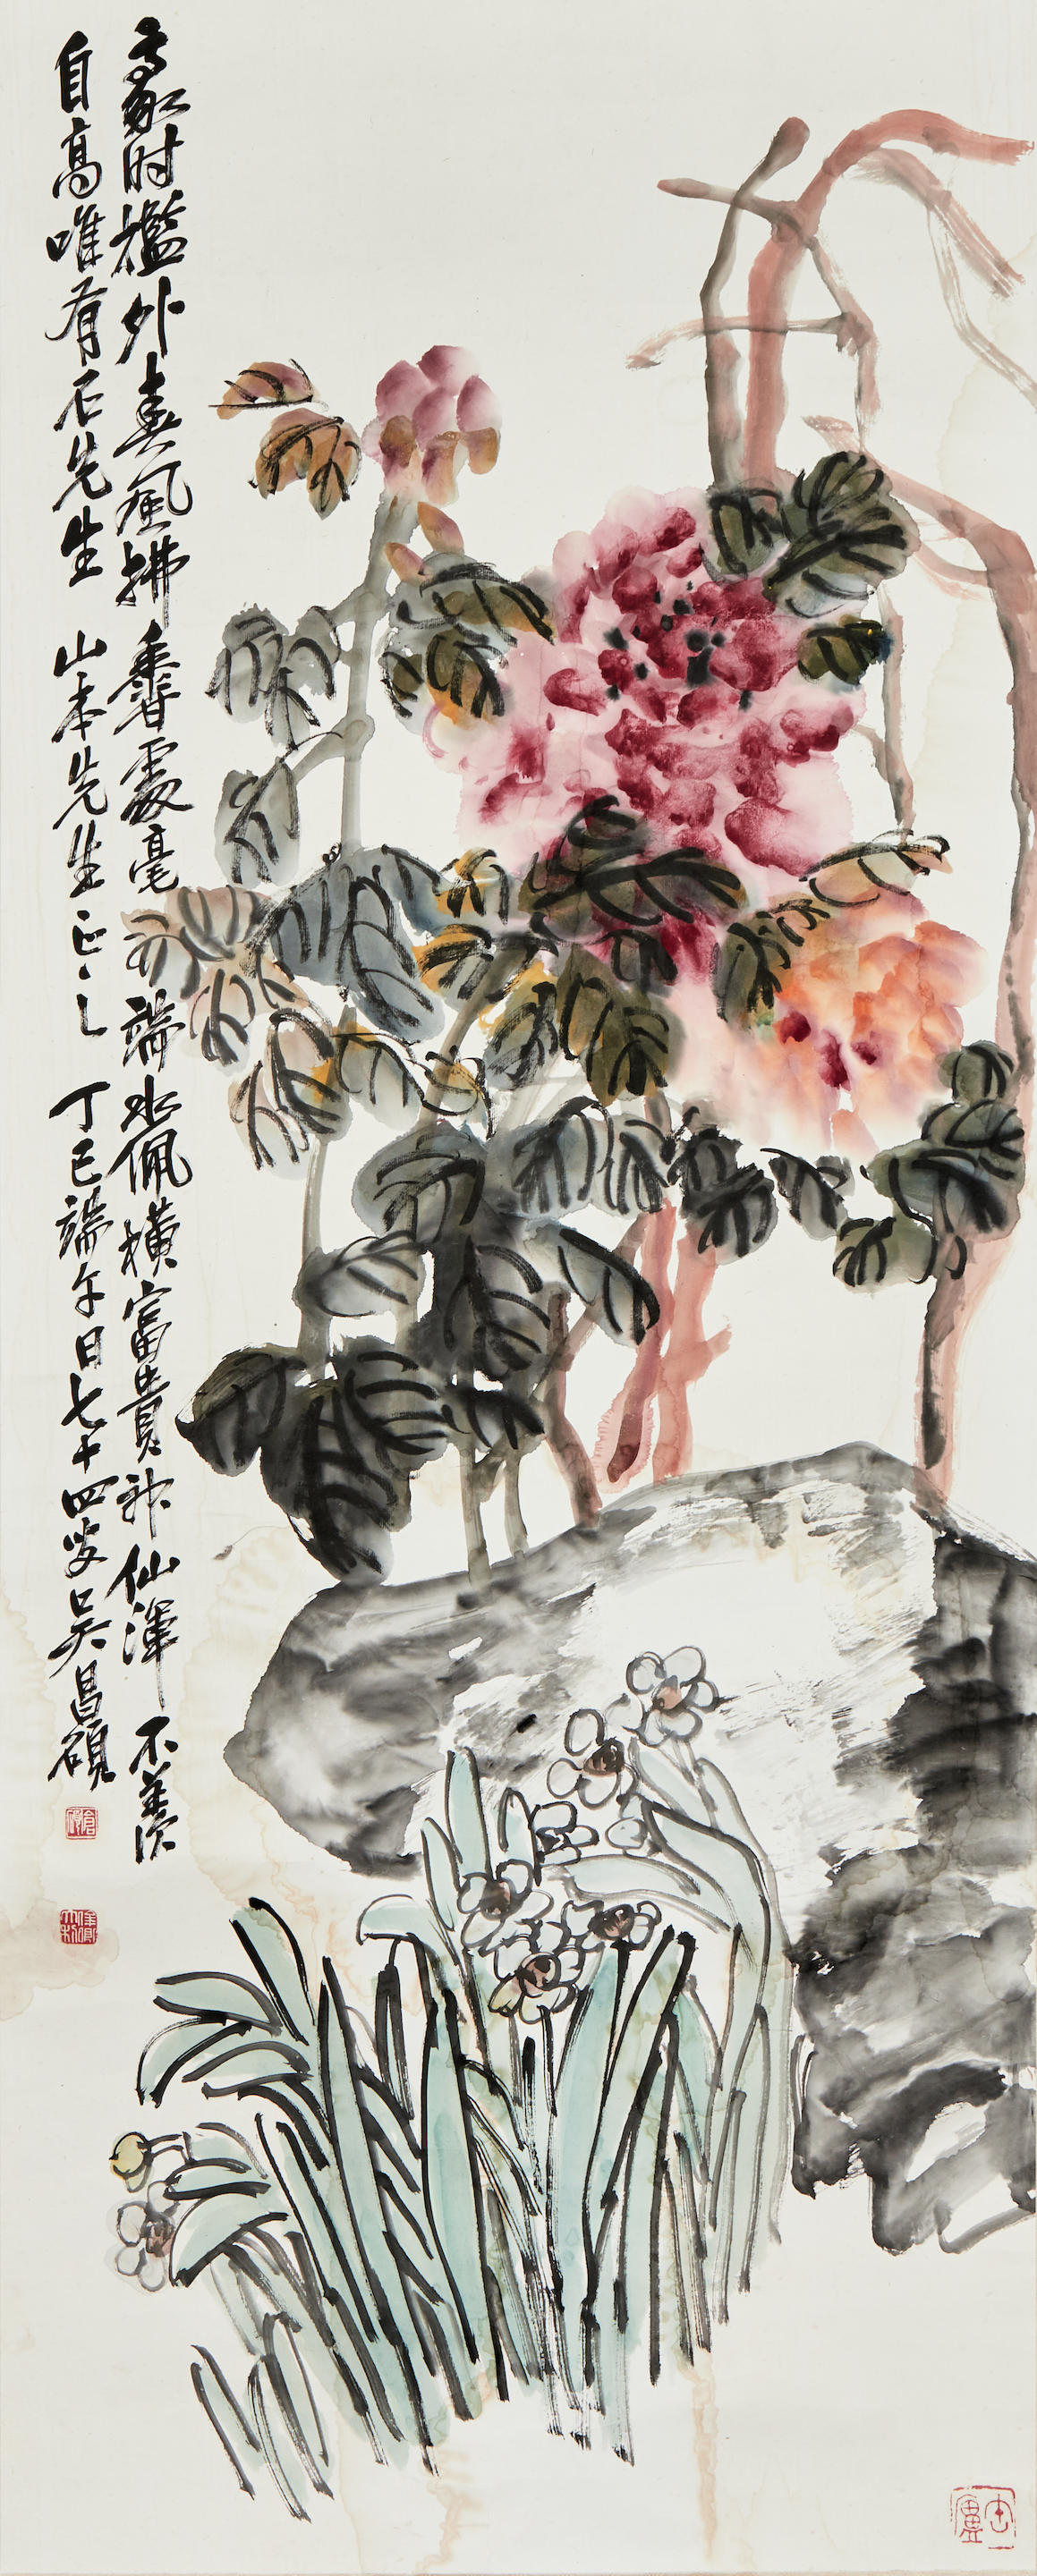 紅时檻外春風拂香處毫端水佩橫富貴神仙渾不羨
自高唯有石先生 山本先生正之 丁巳端午日七十四叟吳昌碩